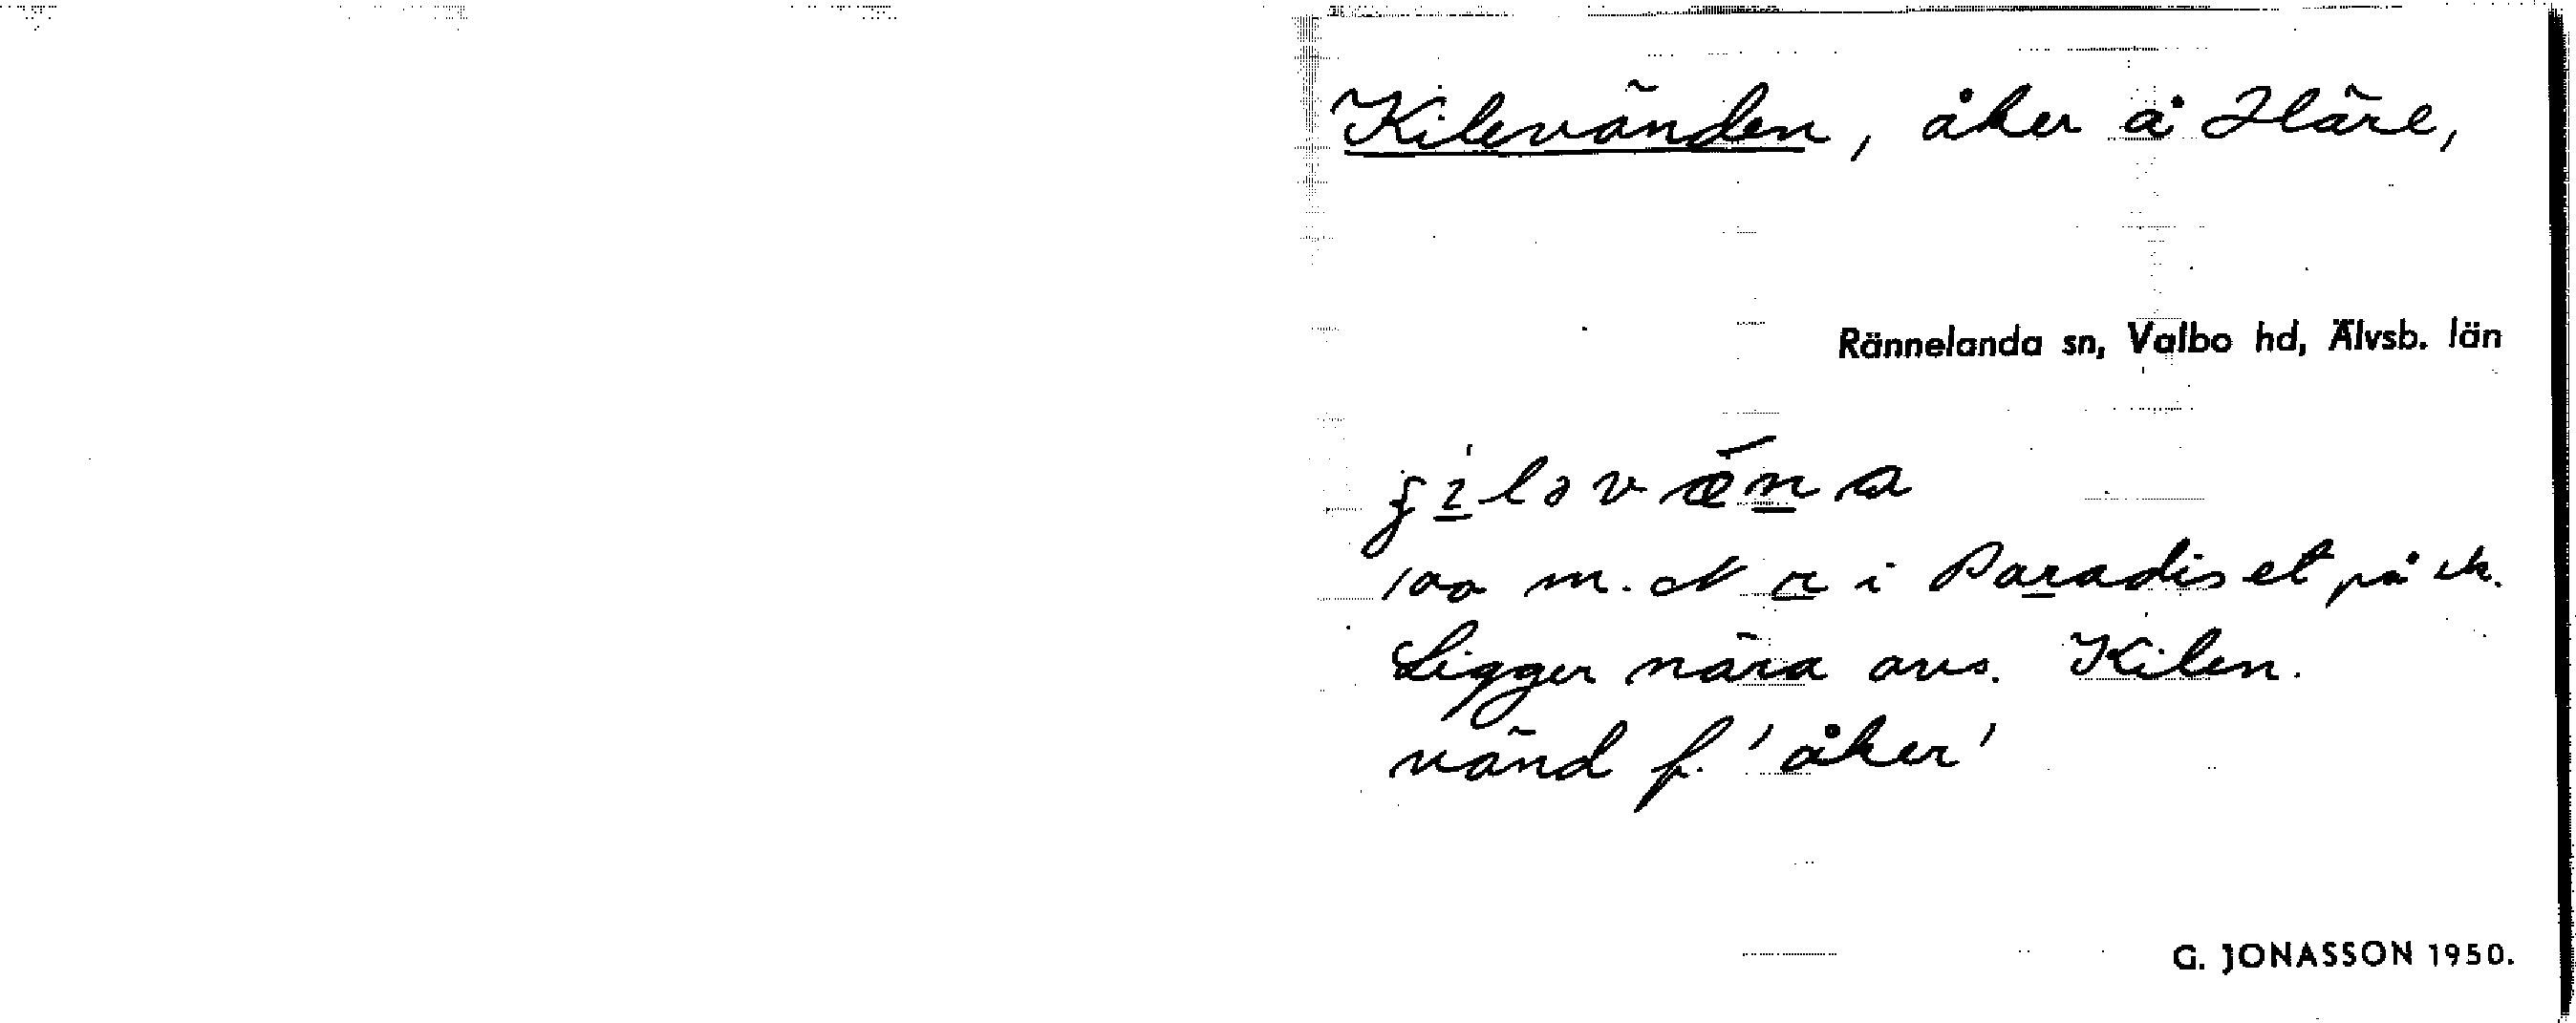 Kilevänden, åker å Häre,
Rännelanda sn, Valbo hd, Älvsb. län
100 m. N r i Paradiset på ek.
Ligger nära avs. Kilen.
vänd f. 'åker'
G. JONASSON 1950.